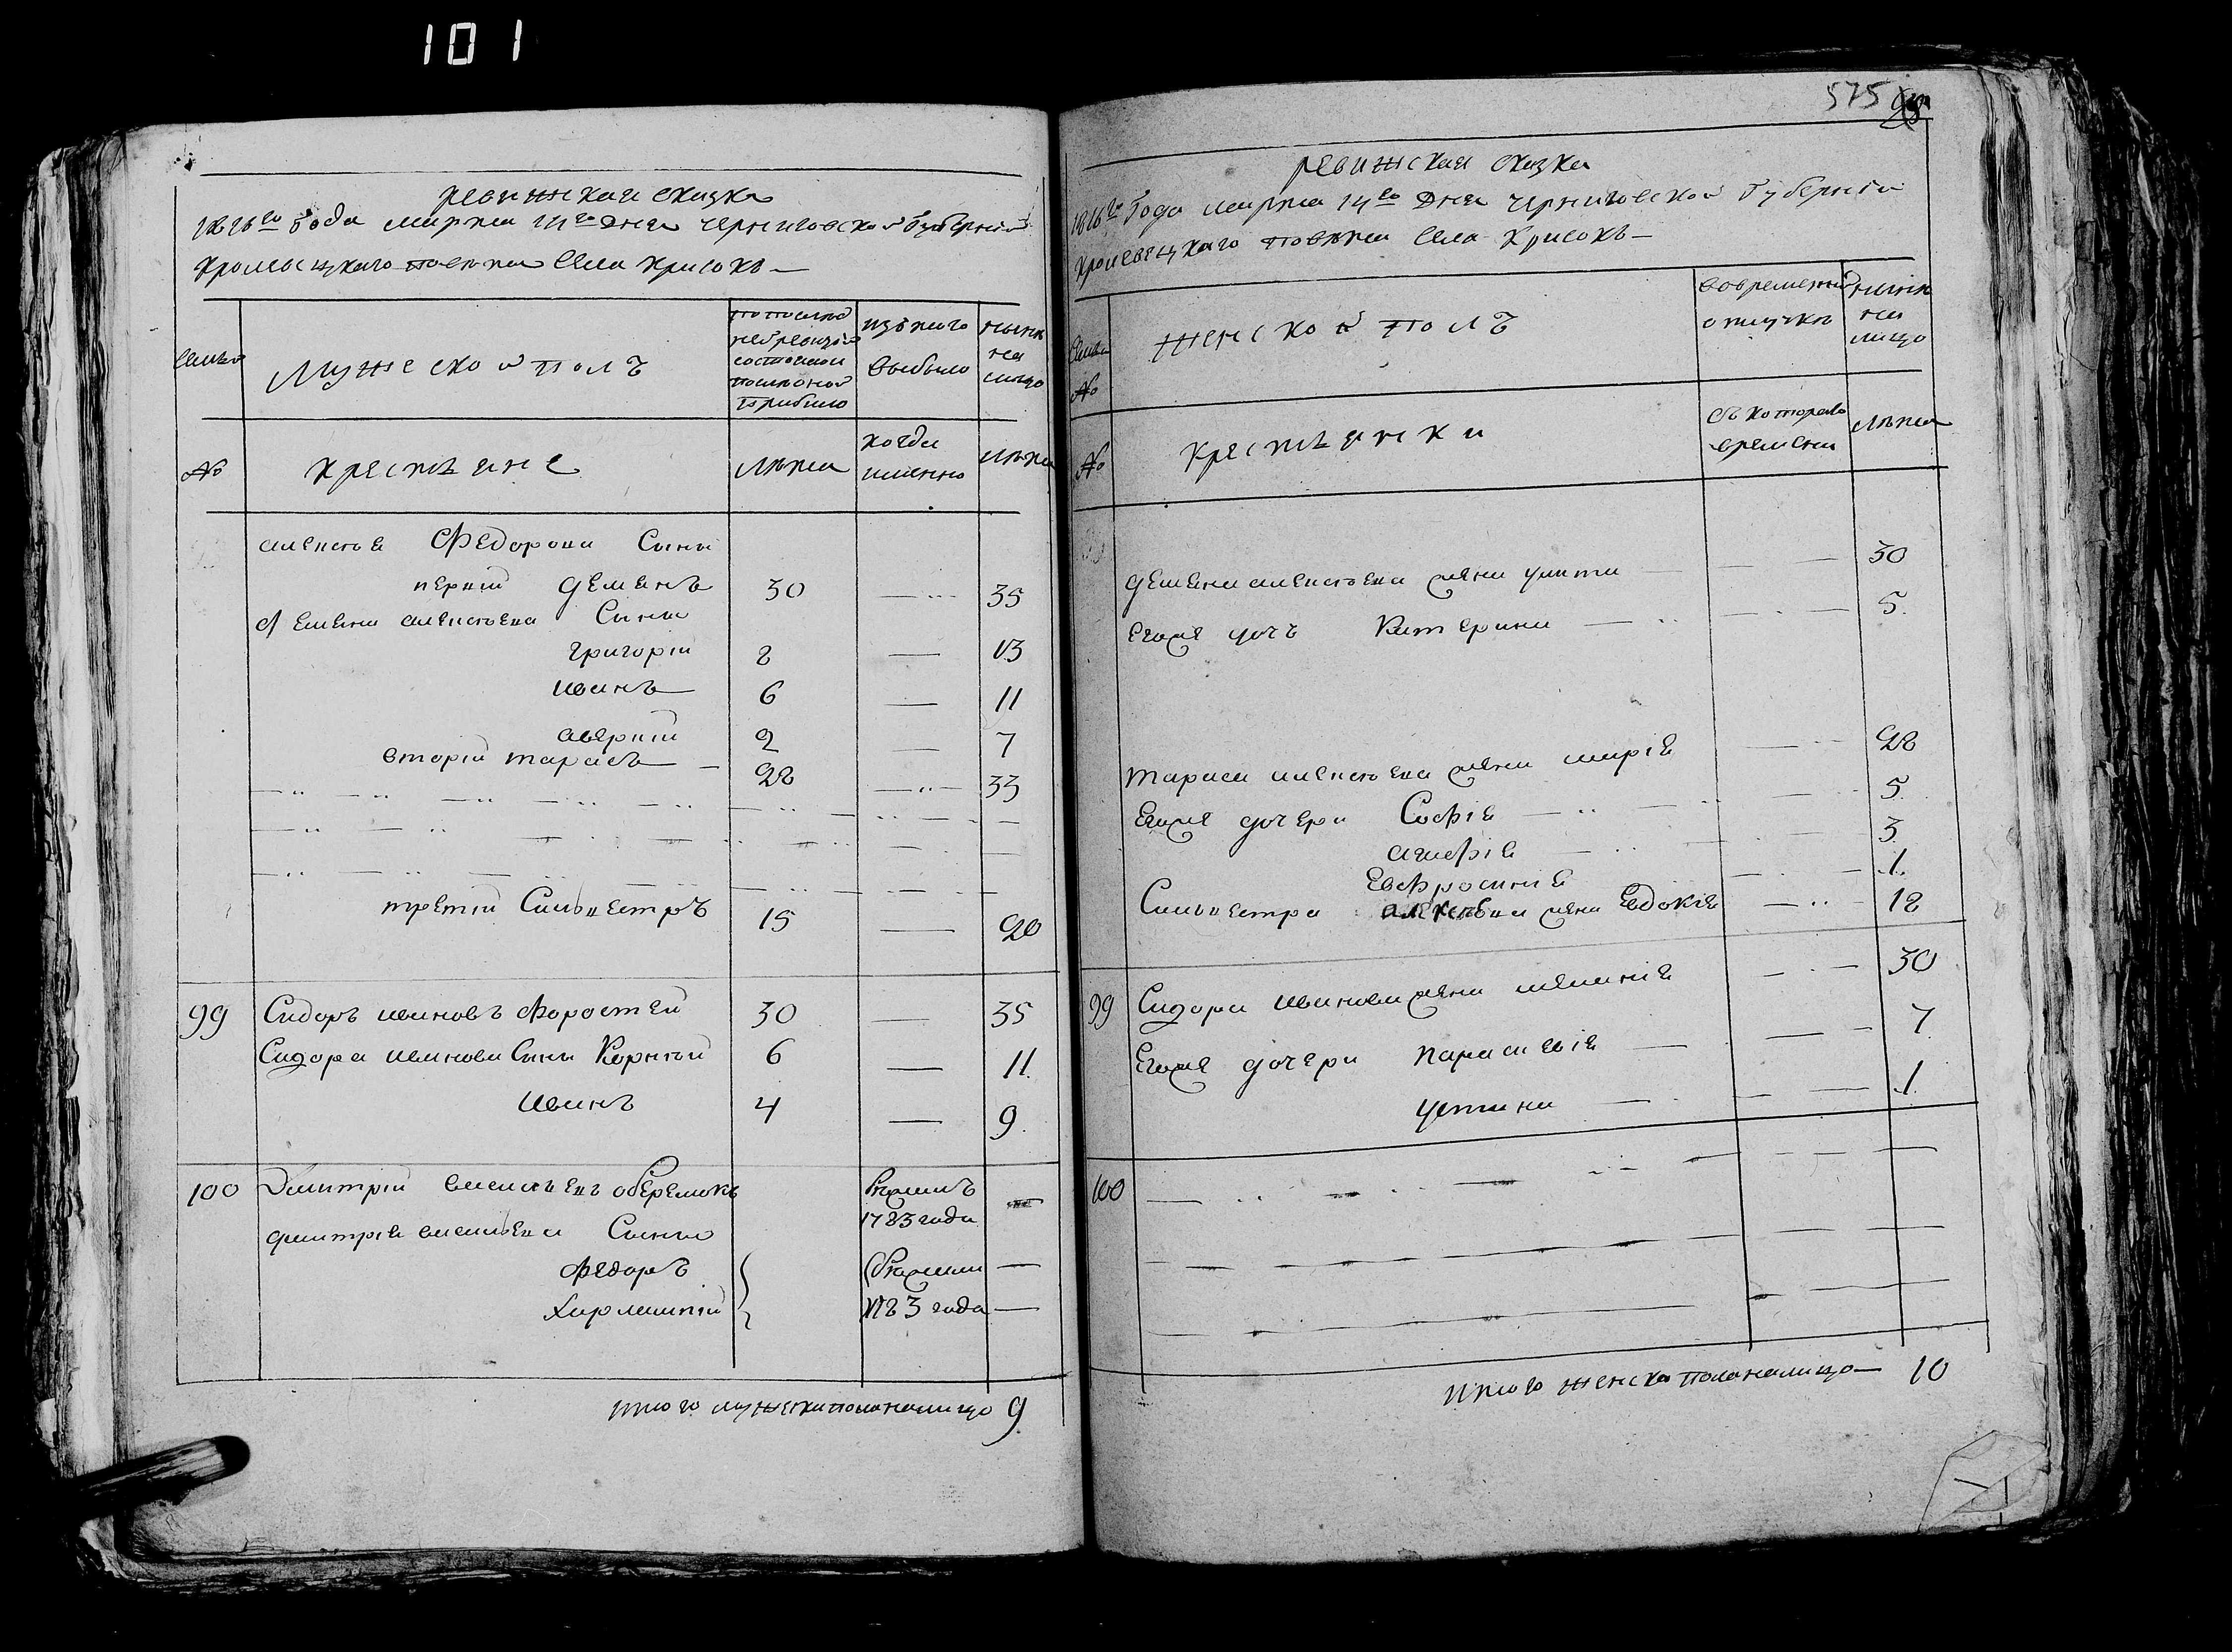 101
ревижская сказка
1816го Года марта 14го Дня Черниговской Губернии
Кролевецкаго повета Села Красокъ
Семьи
Мужеской полъ
по последней ревизіи состояло и после оной прибыло
изъ того выбыло
ныне на лицо
№
крестяне
лета
когда именно
лета
алексея Федорова Сыны
первий Демянъ 30 — 35
Демяна алексеева Сыны
григорій 8 — 13
иванъ 6 — 11
аверкій 2 — 7
вторій тарасъ 28 — 33
третій Сильвестръ 15 — 20
99 Сидоръ ивановъ Форостей 30 — 35
Сидора иванова Сыны Корней 6 — 11
иванъ 4 — 9
100 Дмитрій васильевъ оберемокъ
1783 года —
дмитрія васильева Сыны
федоръ —
Харлампій 1783 года —
итого мужска пола налицо 9
575
ревижская сказка
1816го Года марта 14го Дня Черниговской Губернии
Кролевецкаго повета Села Красокъ
Семьи
№
женской полъ
во временной отлучке
ныне на лицо
№
Крестянки
съ которого времени
лета
Демяна алексеева жена улита — 30
Егоже дочь Катерина — 5
тараса алексеева жена марія — 28
Егоже дочери Софія — 5
агафія — 3
Евфросинія — 1
Сильвестра алексеева жена Евдокія — 18
99 Сидора иванова жена меланія — 30
Егоже дочери параскевія — 7
устина — 1
100
итого женска пола налицо — 10